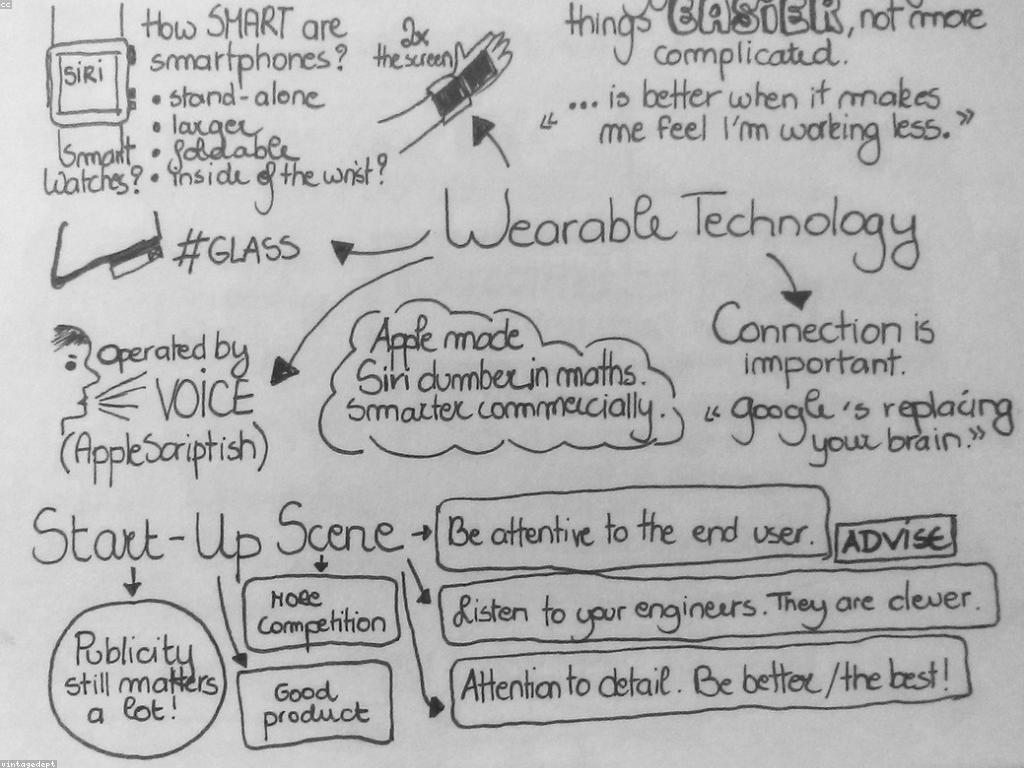 cc
How SMART are
smartphones?
• stand-alone
• larger
• foldable
• inside of the wrist?
SiRi
Smart
Watches?
2x
the screen
things EASIER, not more
complicated.
“ ... is better when it makes
me feel I'm working less.”
Wearable Technology
#GLASS
Operated by
VOICE
(AppleScriptish)
Apple made
Siri dumber in maths.
Smarter commercially.
Connection is
important.
“ google's replacing
your brain.”
Start-Up Scene
Be attentive to the end user.
ADVISE
Listen to your engineers. They are clever.
Attention to detail. Be better / the best!
More
competition
Good
product
Publicity
still matters
a lot!
vintagedept